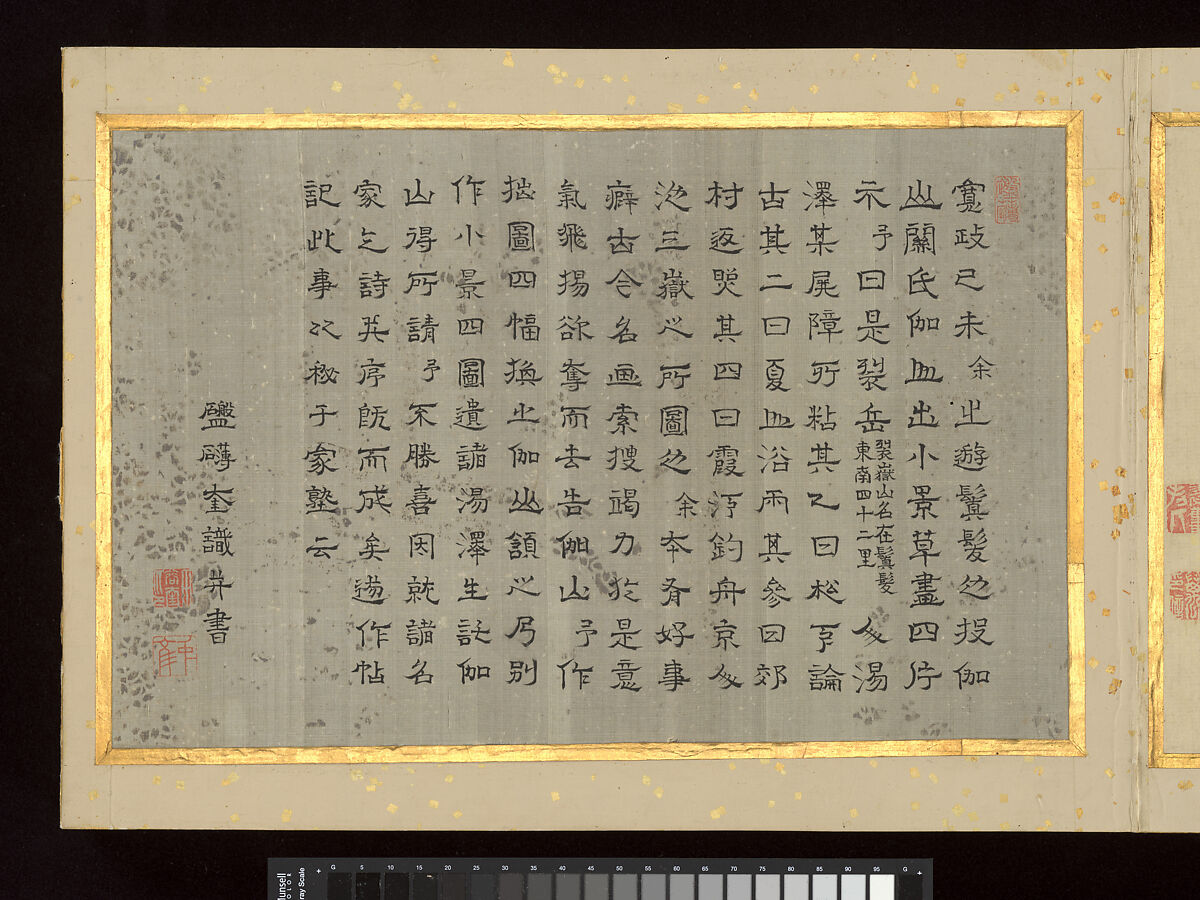 寬政己未余之遊鬒髮也投伽
山關氏伽山出小景草畫四片
示予曰是裂岳裂嶽山名在鬒髮東南四十二里人湯
澤某屏障所粘其乙曰松下論
古其二曰夏山浴雨其參曰郊
村返照其四曰霞汀釣舟京人
池三嶽之所圖也余本有好事
癖古今名画索搜竭力於是意
氣飛揚欲奪而去告伽山予作
拙圖四幅換之伽山頷之乃別
作小景四圖遺諸湯澤生託伽
山得所請予不勝喜因就諸名
家乞詩并序既而成矣遂作帖
記此事以秘于家塾云
礴奎識并書